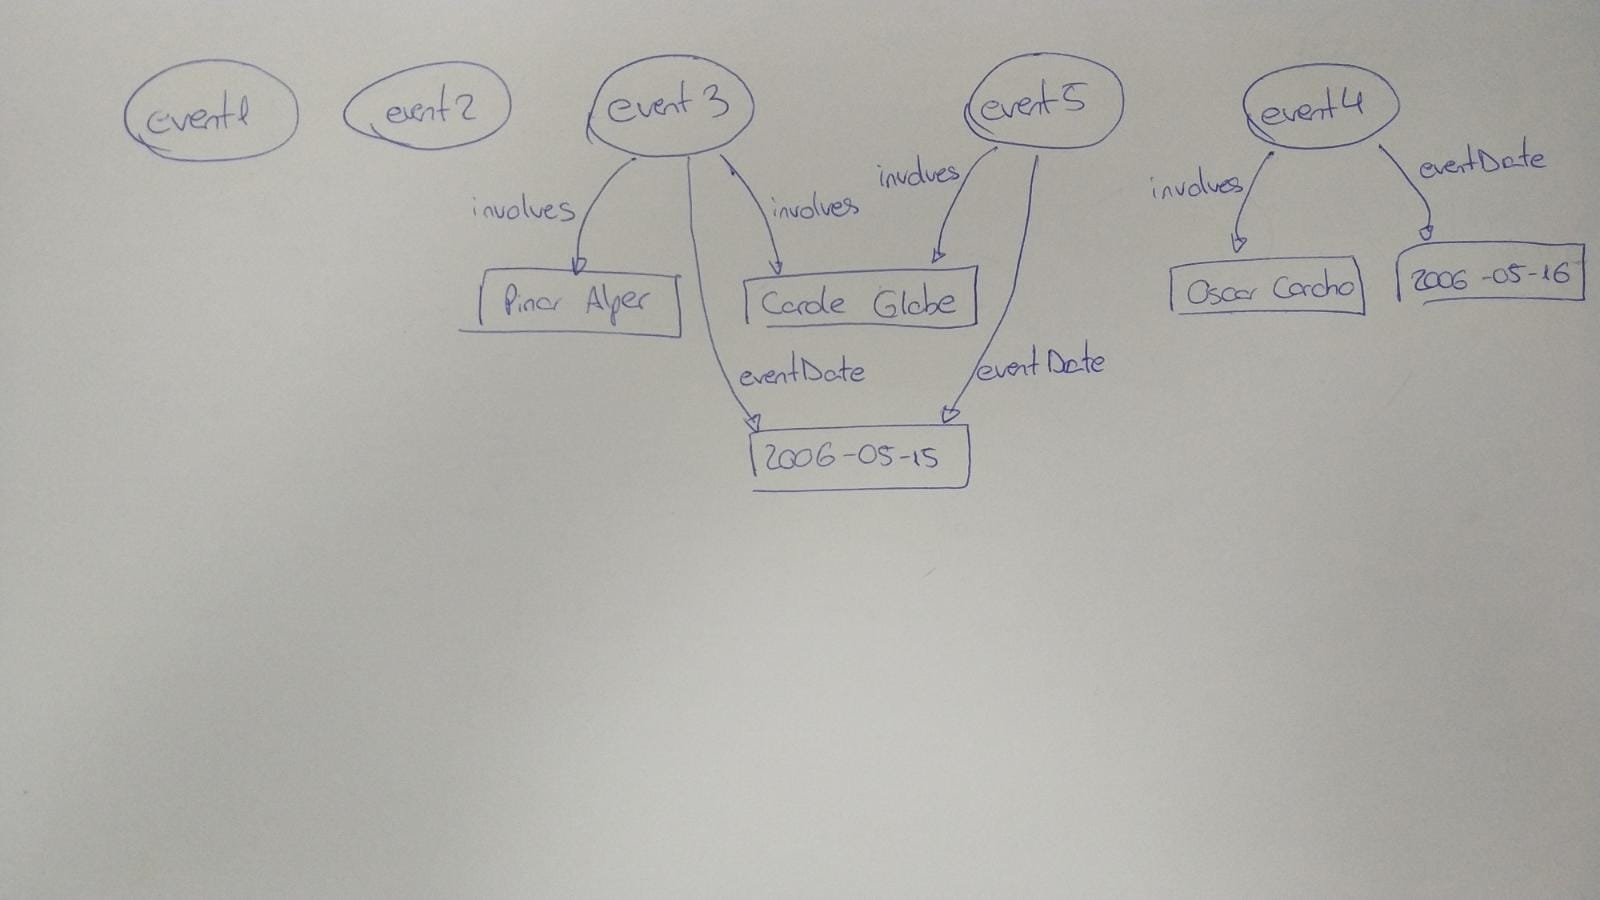 event1 event2 event3 event5 event4
involves involves involves involves eventDate
Pinar Alper Carole Globe Oscar Corcho 2006-05-16
eventDate eventDate
2006-05-15